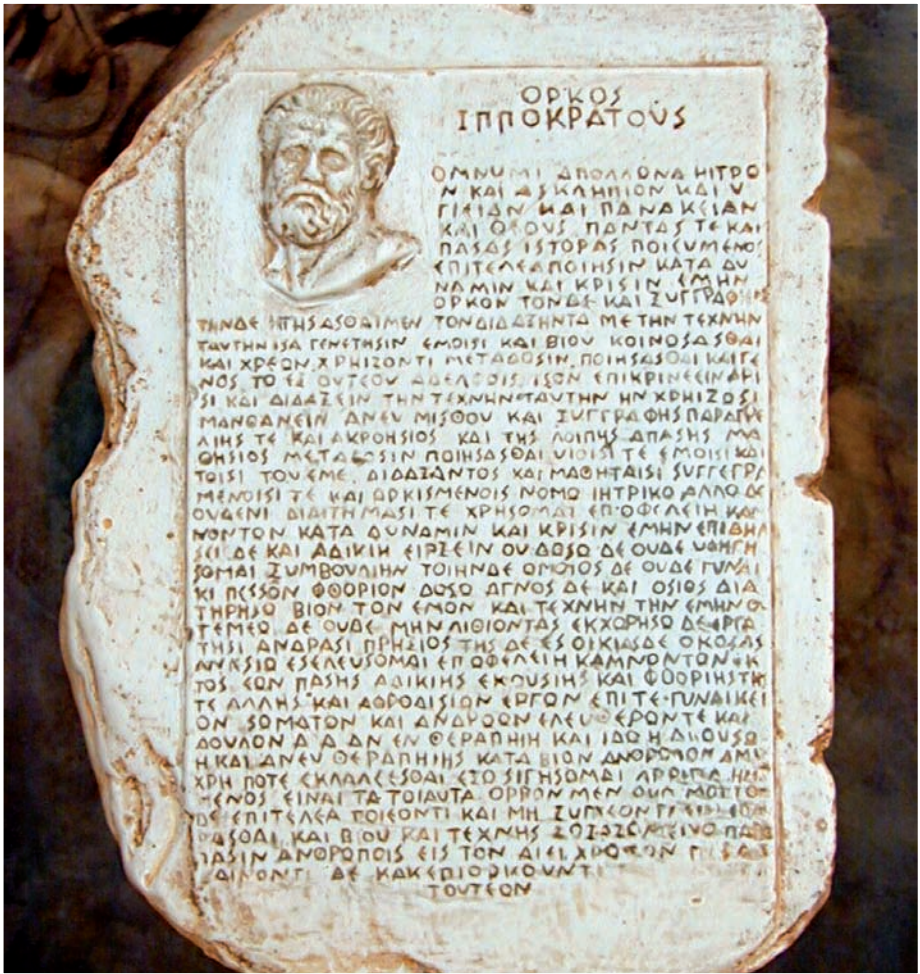 ΟΡΚΟΣ
ΙΠΠΟΚΡΑΤΟΥΣ
ΟΜΝΥΜΙ ΑΠΟΛΛΩΝΑ ΗΙΤΡΟ
Ν ΚΑΙ ΑΣΚΛΗΠΙΟΝ ΚΑΙ Υ
ΓΙΕΙΑΝ ΚΑΙ ΠΑΝΑΚΕΙΑΝ
ΚΑΙ ΘΕΟΥΣ ΠΑΝΤΑΣ ΤΕ ΚΑΙ
ΠΑΣΑΣ ΙΣΤΟΡΑΣ ΠΟΙΕΥΜΕΝΟΣ
ΕΠΙΤΕΛΕΑ ΠΟΙΗΣΙΝ ΚΑΤΑ ΔΥ
ΝΑΜΙΝ ΚΑΙ ΚΡΙΣΙΝ ΕΜΗΝ
ΟΡΚΟΝ ΤΟΝΔΕ ΚΑΙ
ΤΗΝΔΕ ΤΟΝ ΔΙΔΑΞΗΝΤΑ ΜΕ ΤΗΝ ΤΕΧΝΗΝ
ΤΑΥΤΗΝ ΙΣΑ ΓΕΝΕΤΗΣΙΝ ΕΜΟΙΣΙ ΚΑΙ ΒΙΟΥ ΚΟΙΝΟΣΑΣΘΑΙ
ΚΑΙ ΧΡΕΩΝ ΧΡΗΙΖΟΝΤΙ ΜΕΤΑΔΟΣΙΝ ΠΟΙΗΣΑΣΘΑΙ ΚΑΙ ΓΕ
ΝΟΣ ΤΟ ΕΞ ΟΥΤΕΟΥ ΑΔΕΛΦΟΙΣ ΙΣΟΝ ΕΠΙΚΡΙΝΕΕΙΝ ΑΡΙ
ΣΙ ΚΑΙ ΔΙΔΑΞΕΙΝ ΤΗΝ ΤΕΧΝΗΝ ΤΑΥΤΗΝ ΗΝ ΧΡΗΙΖΩΣΙ
ΜΑΝΘΑΝΕΙΝ ΑΝΕΥ ΜΙΣΘΟΥ ΚΑΙ ΞΥΓΓΡΑΦΗΣ ΠΑΡΑΓΓΕ
ΛΙΗΣ ΤΕ ΚΑΙ ΑΚΡΟΗΣΙΟΣ ΚΑΙ ΤΗΣ ΛΟΙΠΗΣ ΑΠΑΣΗΣ ΜΑ
ΘΗΣΙΟΣ ΜΕΤΑΔΟΣΙΝ ΠΟΙΗΣΑΣΘΑΙ ΥΙΟΙΣΙ ΤΕ ΕΜΟΙΣΙ ΚΑΙ
ΤΟΙΣΙ ΤΟΥ ΕΜΕ ΔΙΔΑΞΑΝΤΟΣ ΚΑΙ ΜΑΘΗΤΑΙΣΙ ΣΥΓΓΕΓΡΑ
ΜΕΝΟΙΣΙ ΤΕ ΚΑΙ ΩΡΚΙΣΜΕΝΟΙΣ ΝΟΜΩ ΙΗΤΡΙΚΟ ΑΛΛΟ ΔΕ
ΟΥΔΕΝΙ ΔΙΑΙΤΗΜΑΣΙ ΤΕ ΧΡΗΣΟΜΑΙ ΕΠ ΟΦΕΛΕΙΗ ΚΑΜ
ΝΟΝΤΩΝ ΚΑΤΑ ΔΥΝΑΜΙΝ ΚΑΙ ΚΡΙΣΙΝ ΕΜΗΝ ΕΠΙ ΔΗΛ
ΣΕΙ ΔΕ ΚΑΙ ΑΔΙΚΙΗ ΕΙΡΞΕΙΝ ΟΥ ΔΩΣΩ ΔΕ ΟΥΔΕ ΥΦΗΓΗ
ΣΟΜΑΙ ΞΥΜΒΟΥΛΙΗΝ ΤΟΙΗΝΔΕ ΟΜΟΙΟΣ ΔΕ ΟΥΔΕ ΓΥΝΑΙ
ΚΙ ΠΕΣΣΟΝ ΦΘΟΡΙΟΝ ΔΩΣΩ ΑΓΝΟΣ ΔΕ ΚΑΙ ΟΣΙΟΣ ΔΙΑ
ΤΗΡΗΣΩ ΒΙΟΝ ΤΟΝ ΕΜΟΝ ΚΑΙ ΤΕΧΝΗΝ ΤΗΝ ΕΜΗΝ Ο
ΤΕΜΕΩ ΔΕ ΟΥΔΕ ΜΗΝ ΛΙΘΙΟΝΤΑΣ ΕΚΧΩΡΗΣΩ ΔΕ ΕΡΓΑ
ΤΗΣΙ ΑΝΔΡΑΣΙ ΠΡΗΞΙΟΣ ΤΗΣ ΔΕ ΕΣ ΟΙΚΙΑΣ ΔΕ ΟΚΟΣΑΣ
ΑΝ ΕΣΙΩ ΕΣΕΛΕΥΣΟΜΑΙ ΕΠ ΩΦΕΛΕΙΗ ΚΑΜΝΟΝΤΩΝ ΕΚ
ΤΟΣ ΕΩΝ ΠΑΣΗΣ ΑΔΙΚΙΗΣ ΕΚΟΥΣΙΗΣ ΚΑΙ ΦΘΟΡΙΗΣ ΤΗ
ΤΕ ΑΛΛΗΣ ΚΑΙ ΑΦΡΟΔΙΣΙΩΝ ΕΡΓΩΝ ΕΠΙ ΤΕ ΓΥΝΑΙΚΕΙ
ΟΝ ΣΩΜΑΤΩΝ ΚΑΙ ΑΝΔΡΩΩΝ ΕΛΕΥΘΕΡΩΝ ΤΕ ΚΑΙ
ΔΟΥΛΟΝ Α Δ ΑΝ ΕΝ ΘΕΡΑΠΗΙΗ ΚΑΙ ΙΔΩ Η ΑΚΟΥΣΩ
Η ΚΑΙ ΑΝΕΥ ΘΕΡΑΠΗΙΗΣ ΚΑΤΑ ΒΙΟΝ ΑΝΘΡΩΠΩΝ Α ΜΗ
ΧΡΗ ΠΟΤΕ ΕΚΛΑΛΕΕΣΘΑΙ ΕΞΟ ΣΙΓΗΣΟΜΑΙ ΑΡΡΗΤΑ
ΜΕΝΟΣ ΕΙΝΑΙ ΤΑ ΤΟΙΑΥΤΑ ΟΡΡΟΝ ΜΕΝ ΟΥΝ ΜΟΙ ΤΟ
ΔΕ ΕΠΙΤΕΛΕΑ ΠΟΙΕΟΝΤΙ ΚΑΙ ΜΗ
ΡΑΣΘΑΙ ΚΑΙ ΒΙΟΥ ΚΑΙ ΤΕΧΝΗΣ
ΠΑΣΙΝ ΑΝΘΡΩΠΟΙΣ ΕΙΣ ΤΟΝ ΑΙΕΙ ΧΡΟΝΟΝ
ΔΕ ΚΑΚ ΕΠΙΟΡΚΟΥΝΤΙ
ΤΟΥΤΕΩΝ